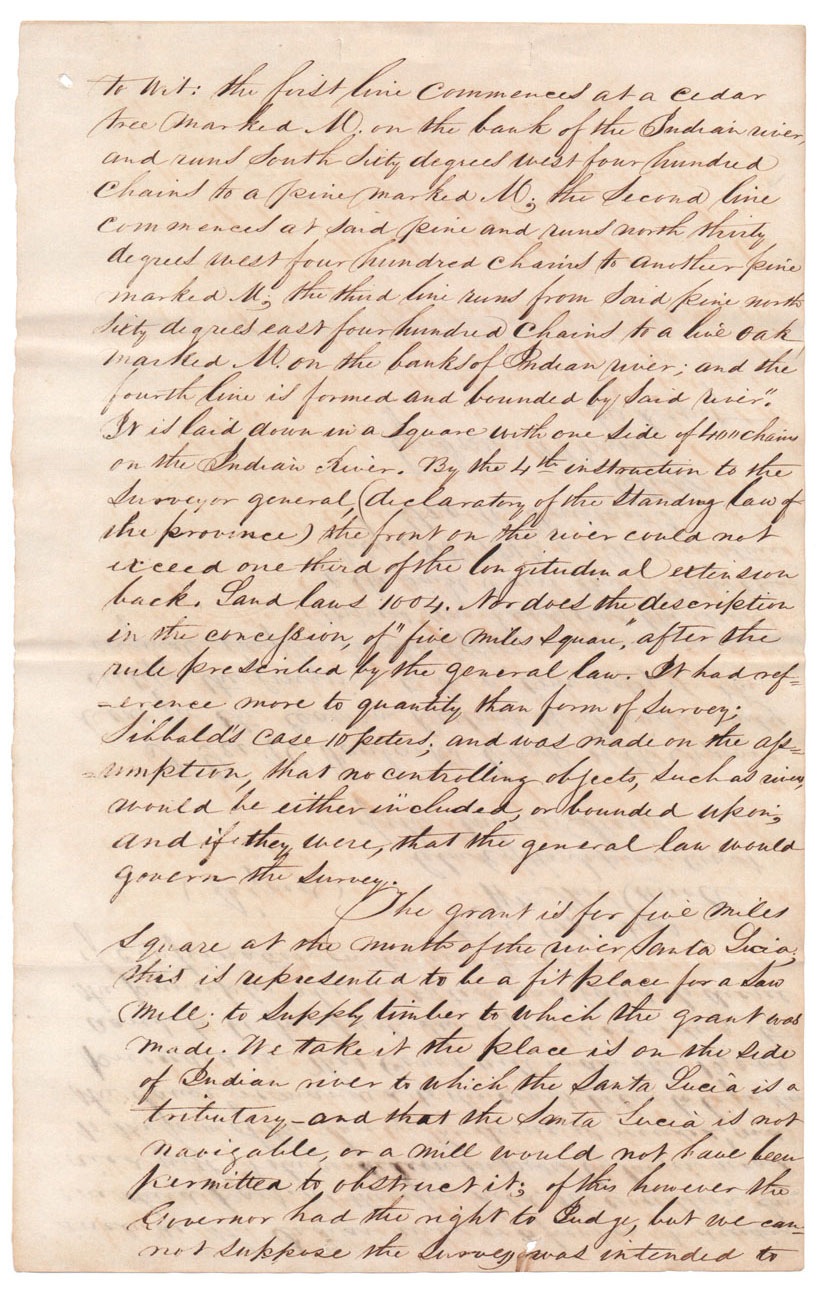 to wit: the first line commences at a cedar
tree marked M. on the bank of the Indian river,
and runs South Sixty degrees west four hundred
chains to a pine marked M; the Second line
commences at said pine and runs north thirty
degrees west four hundred chains to another pine
marked M; the third line runs from said pine north
sixty degrees east four hundred chains to a live oak
marked M. on the banks of Indian river; and the
fourth line is formed and bounded by said river".
It is laid down in a Square with one side of 400 chains
on the Indian River. By the 4th instruction to the
Surveyor general, (declaratory of the standing law of
the province) the front on the river could not
exceed one third of the longitudinal extension
back. Land laws 1004. Nor does the description
in the concession, of "five miles square", alter the
rule prescribed by the general law. It had ref=
=erence more to quantity than form of survey;
Sibbald's case 10 peters; and was made on the ass=
=umption, that no controlling objects, such as rivers,
would be either included, or bounded upon;
and if they were, that the general law would
govern the survey.
The grant is for five miles
square at the mouth of the river Santa Lucia;
this is represented to be a fit place for a Saw
Mill; to supply timber to which the grant was
made. We take it the place is on the side
of Indian river to which the Santa Lucia is a
tributary - and that the Santa Lucia is not
navigable, or a mill would not have been
permitted to obstruct it; of this however the
Governor had the right to Judge, but we can-
not suppose the survey was intended to